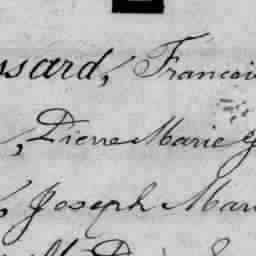 ssard, Francoi
, Pierre Marie
Joseph Mari